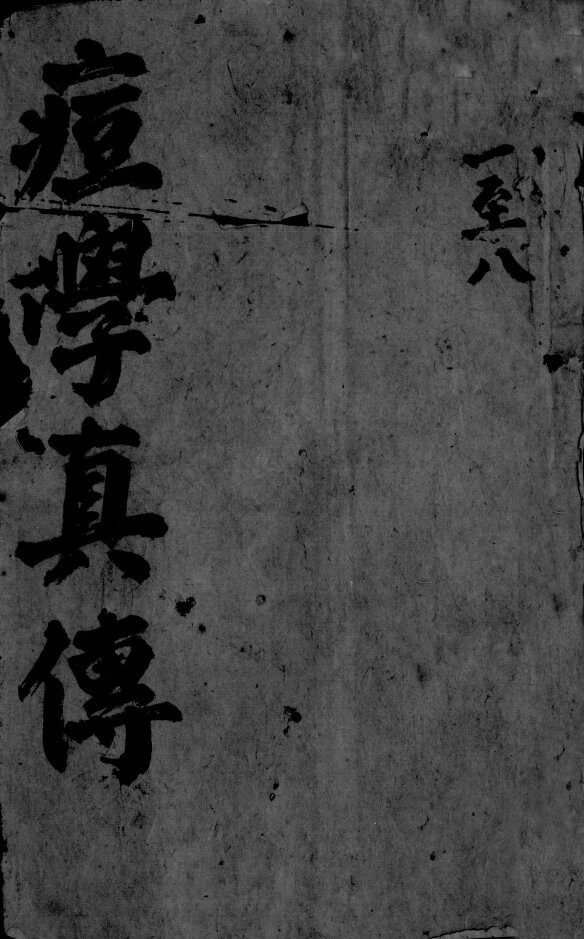 一至八
痘學真傳